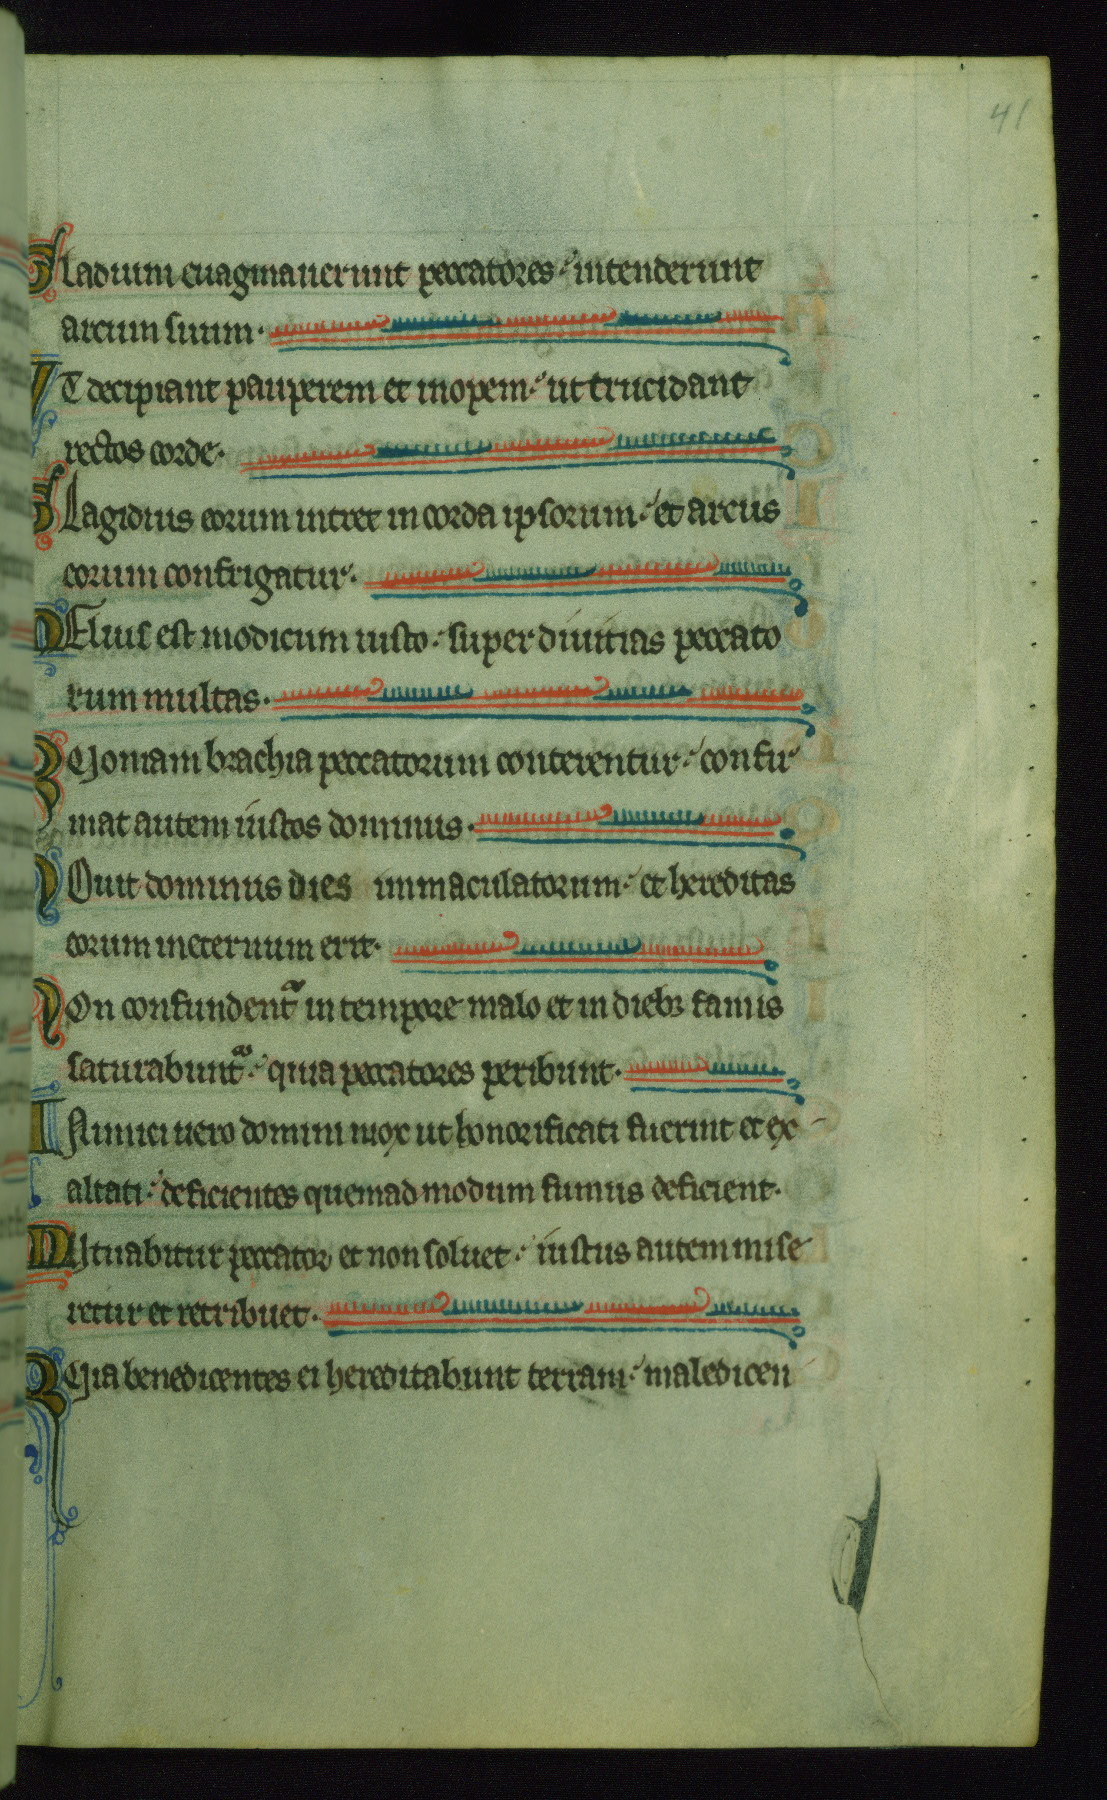 41
Gladium euaginauerunt peccatores intenderunt
arcum suum.
VT decipiant pauperem et inopem ut trucidant
rectos corde.
Glagidius eorum intret in corda ipsorum et arcus
eorum confrigatur.
MElius est modicum iusto super diuitias peccato
rum multas.
Quoniam brachia peccatorum conterentur confir
mat autem iustos dominus.
NOuit dominus dies inmaculatorum et hereditas
eorum in eternum erit.
NOn confundentᷣ in tempore malo et in diebꝫ famis
saturabuntᷣ quia peccatores peribunt.
INimici uero domini mox ut honorificati fuerint et ex
altati deficientes quemadmodum fumus deficient.
MUtuabitur peccator et non soluet iustus autem mise
retur et retribuet.
Quia benedicentes ei hereditabunt terram maledicen